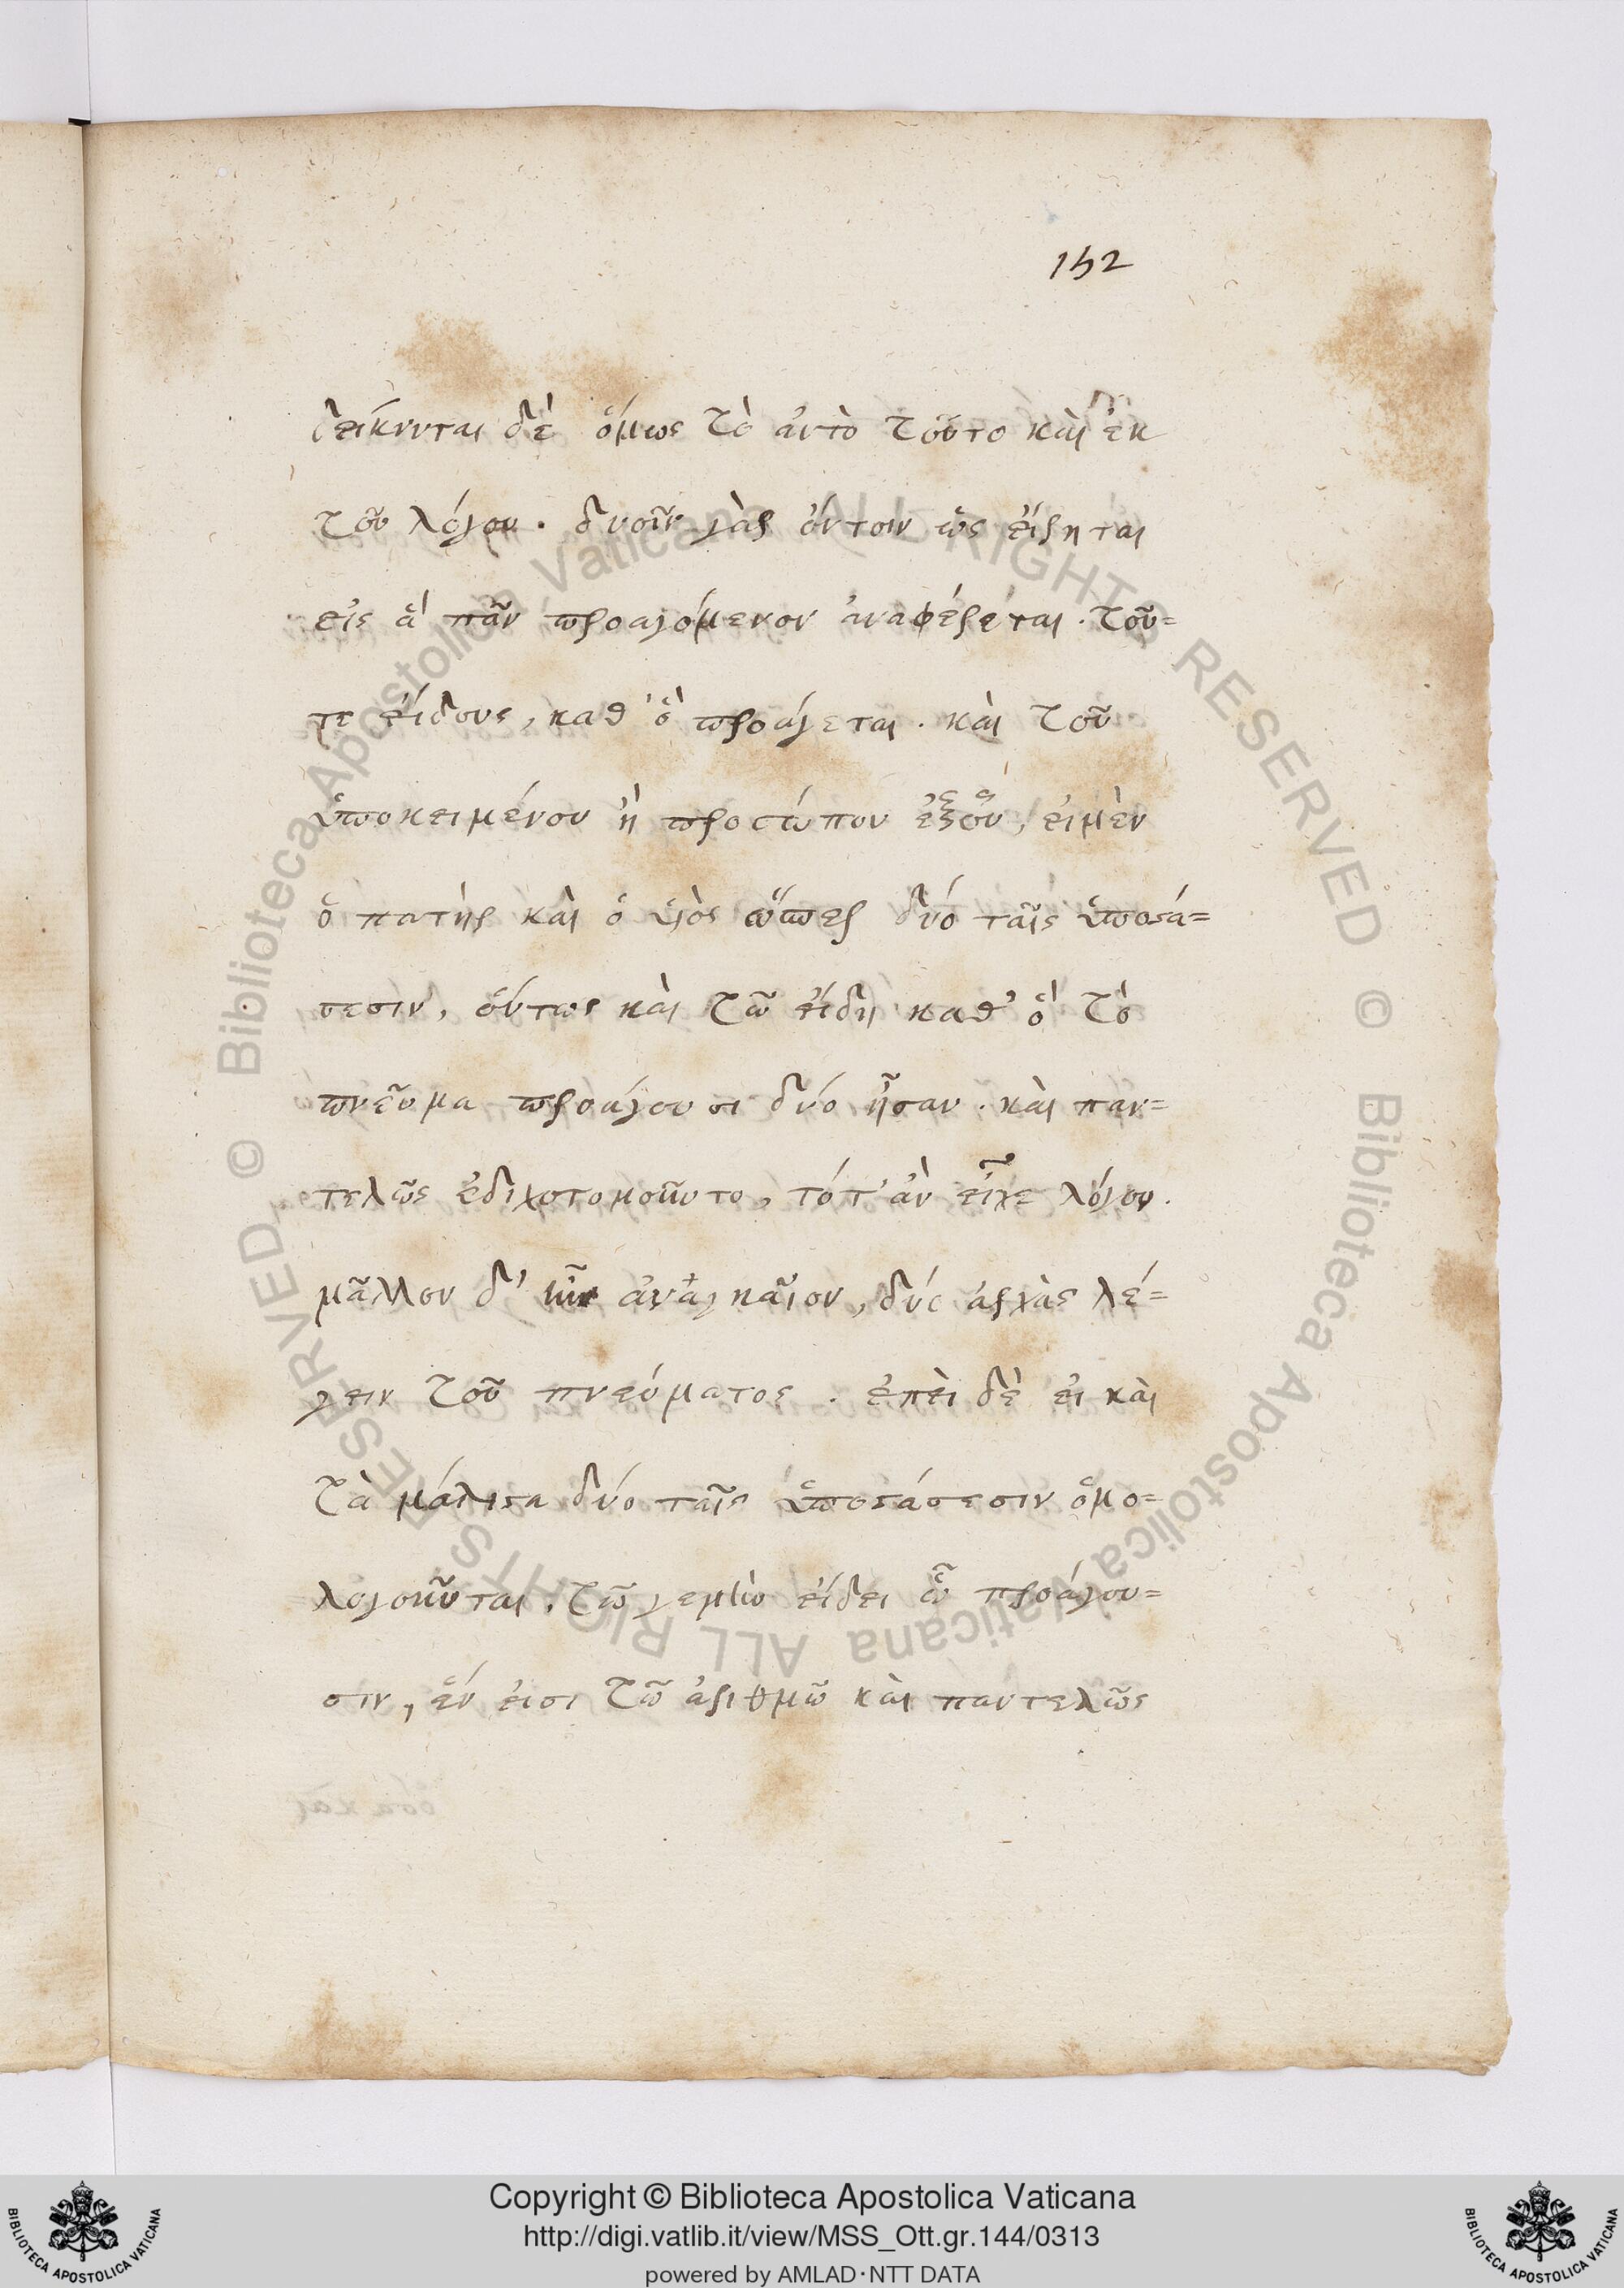 152
δείκνυται δὲ ὅμως τὸ ἀυτὸ τοῦτο καὶ ἐκ
τοῦ λόγου. δυοῖν γὰρ ὄντοιν ὡς εἴρηται
εἰς ἃ πᾶν προαγόμενον ἀναφέρεται. τοῦ=
τε εἴδους, καθ' ὃ προάγεται. καὶ τοῦ
ὑποκειμένου ἢ προσώπου ἐξ οὗ, εἰ μὲν
ὁ πατὴρ καὶ ὁ υἱὸς ὥσπερ δύο ταῖς ὑποστά=
σεσιν, οὕτως καὶ τῶ εἴδη καθ' ὃ τὸ
πνεῦμα προάγουσι δύο ἦσαν. καὶ παν=
τελῶς ἐδιχοτομοῦντο, τότ' ἀν εἶχε λόγον.
μᾶλλον δ' ἦν ἀναγκαῖον, δύο ἀρχὰς λέ=
γειν τοῦ πνεύματος. ἐπεὶ δὲ εἰ καὶ
τὰ μάλιστα δύο ταῖς ὑποστάσεσιν ὁμο=
λογοῦνται. τῶ γεμὴν εἴδει ὧ προάγου=
σιν, ἕν εἰσι τῶ ἀριθμῶ καὶ παντελῶς
Copyright © Biblioteca Apostolica Vaticana
http://digi.vatlib.it/view/MSS_Ott.gr.144/0313
powered by AMLAD·NTT DATA
© Biblioteca Apostolica Vaticana ALL RIGHTS RESERVED
© Biblioteca Apostolica Vaticana ALL RIGHTS RESERVED
BIBLIOTECA APOSTOLICA VATICANA
BIBLIOTECA APOSTOLICA VATICANA